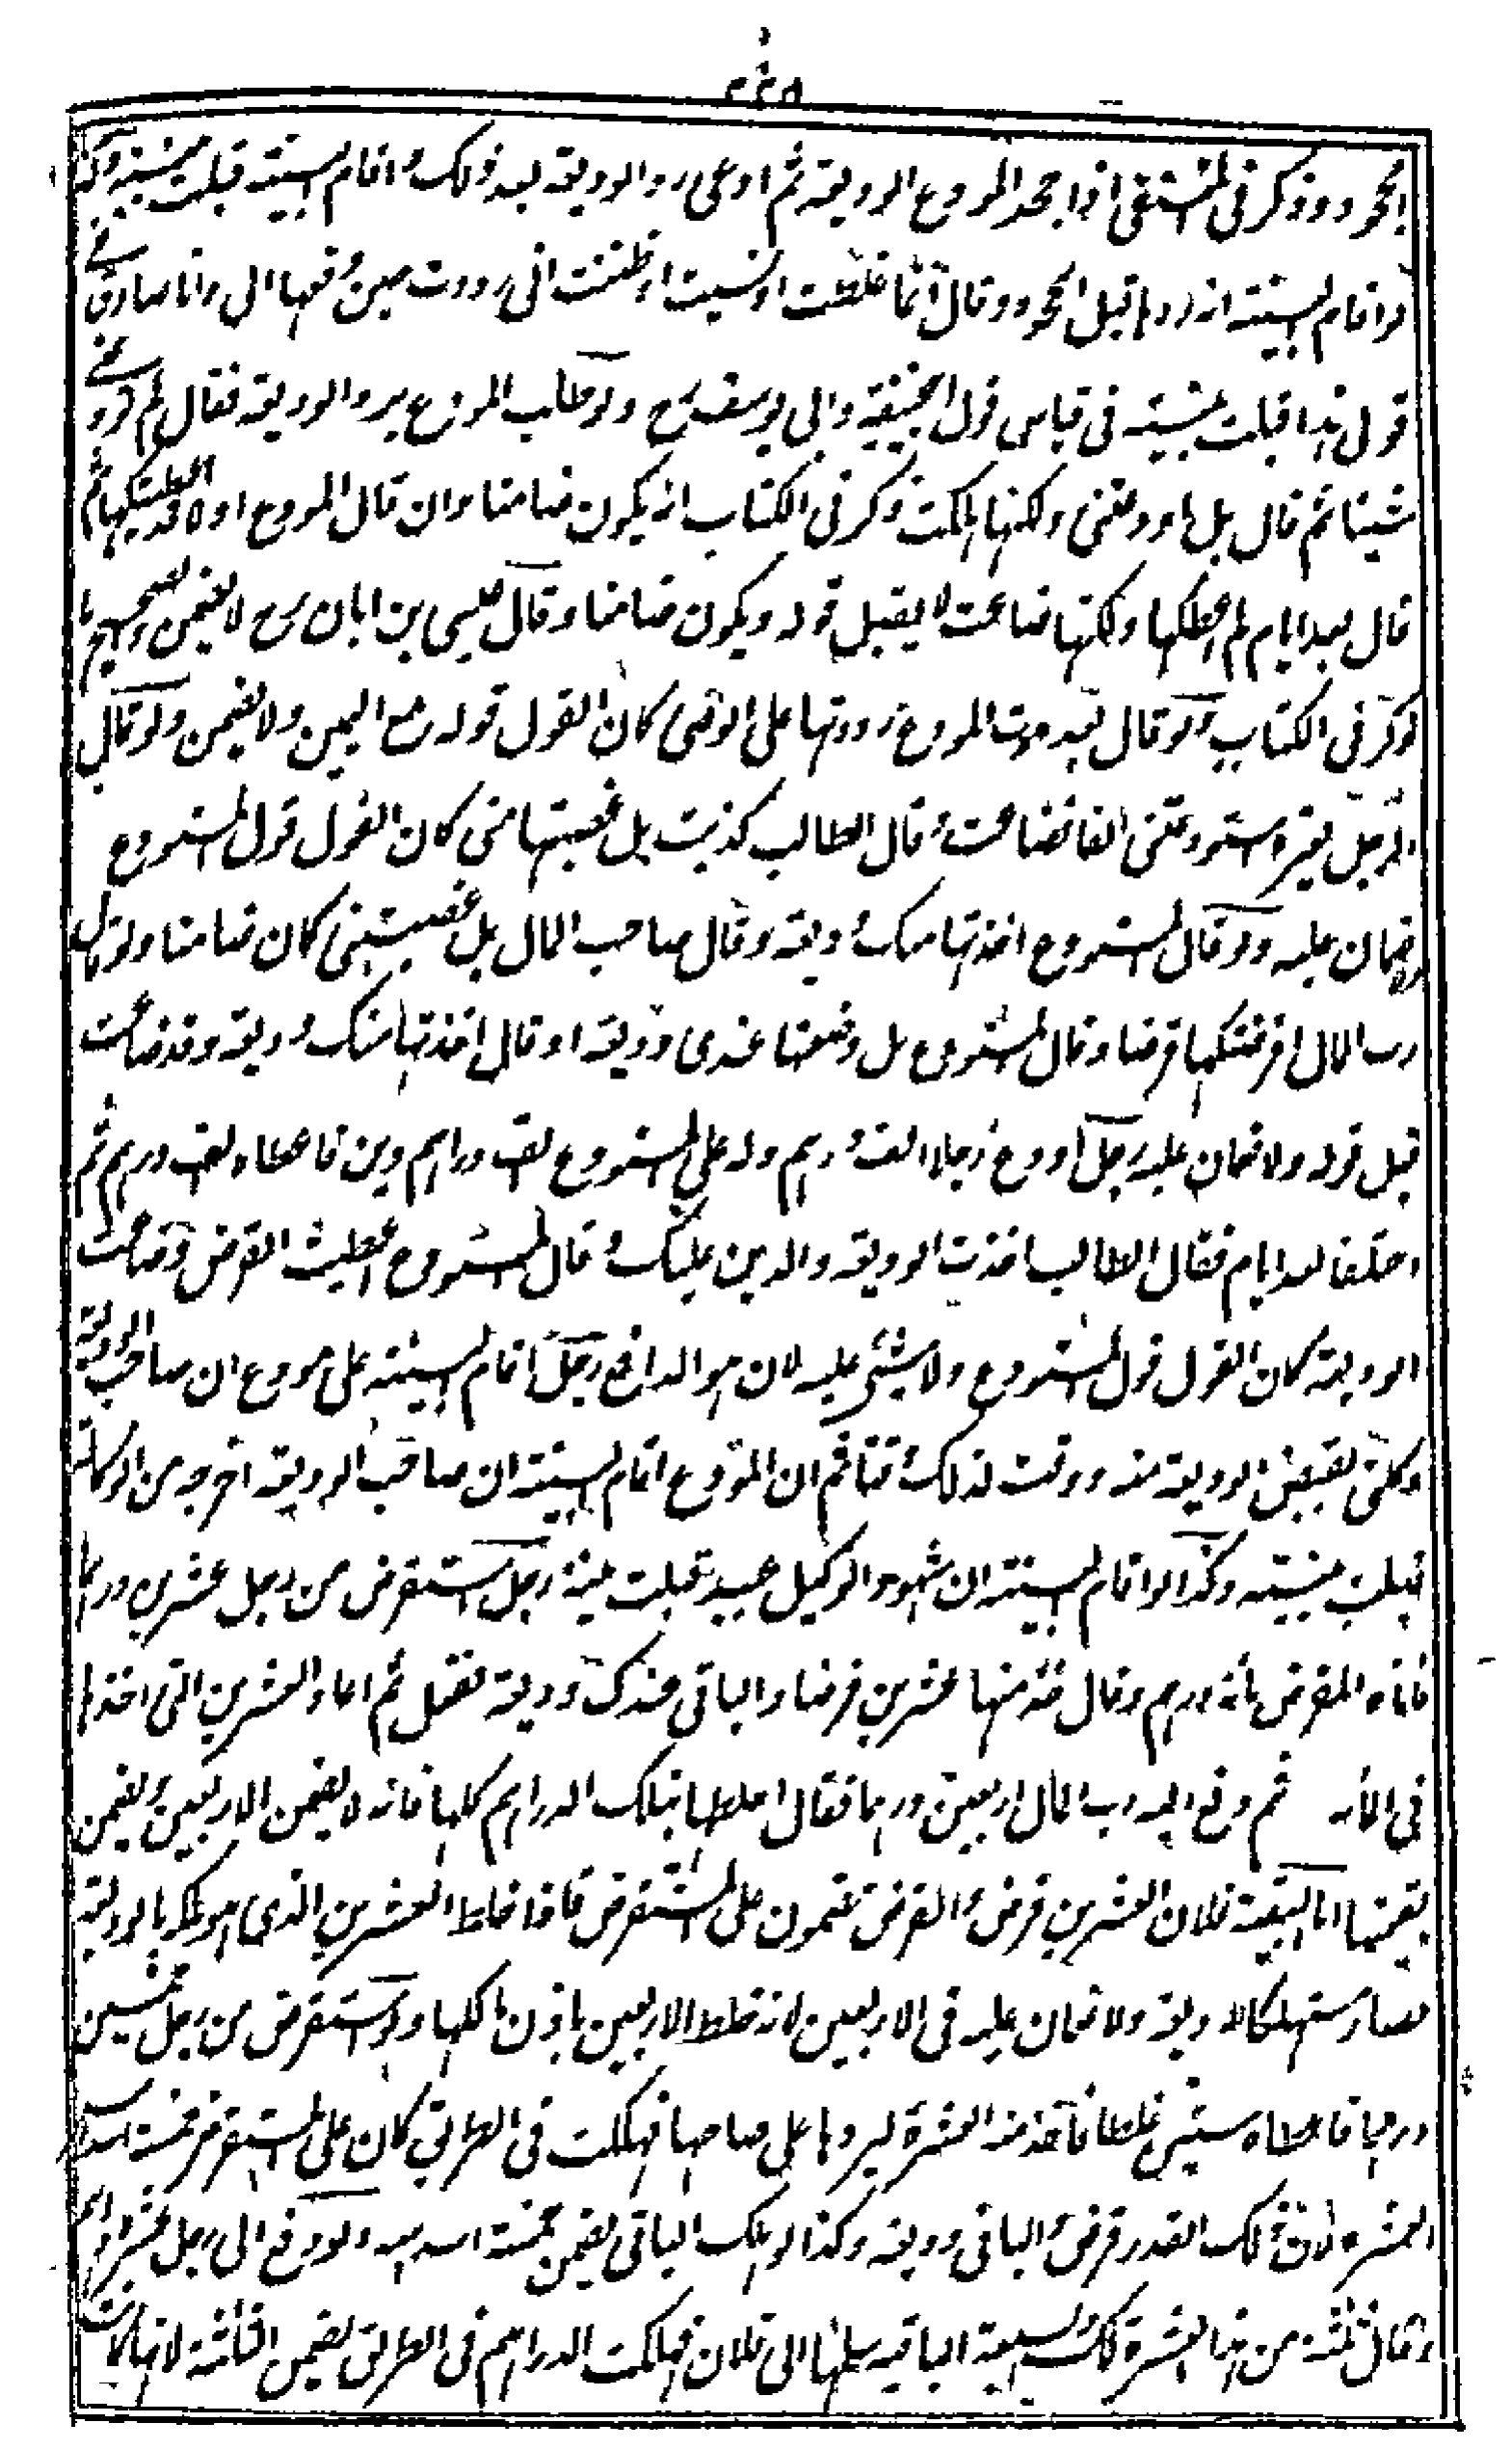 ٤٤٥
الجحود وذكر فى المنتقى اذا جحد المودع الوديعة ثم ادعى رد الوديعة بعد ذلك واقام البينة قبلت بينته وكذا
لو اقام البينة انه ردها قبل الجحود وقال انما غلطت او نسيت او ظننت انى رددت حين دفعها الى وانا صادق فى
قولى هذا قبلت بينته فى قياس قول ابى حنيفة وابى يوسف رح ولو طلب المودع برد الوديعة فقال لم تودعنى
شيئا ثم قال بل اودعتنى ولكنها هلكت ذكر فى الكتاب انه يكون ضامنا وان قال المودع اولا قد اعطيتكها ثم
قال بعد ايام لم اعطكها ولكنها ضاعت لا يقبل قوله ويكون ضامنا وقال عيسى بن ابان رح لا يضمن والصحيح ما
ذكر فى الكتاب ولو قال بعد موت المودع رددتها على الوصى كان القول قوله مع اليمين ولا يضمن ولو قال
الرجل لغيره استودعتنى الفا فضاعت وقال الطالب كذبت بل غصبتها منى كان القول قول المستودع
ولا ضمان عليه ولو قال المستودع اخذتها منك وديعة وقال صاحب المال بل غصبتنى كان ضامنا ولو قال
رب المال اقرضتكها قرضا وقال المستودع بل وضعتها عندى وديعة او قال اخذتها منك وديعة وقد ضاعت
قبل قوله ولا ضمان عليه رجل اودع رجلا الف درهم وله على المستودع الف دراهم دين فاعطاه الف درهم ثم
اختلفا بعد ايام فقال الطالب اخذت الوديعة والدين عليك وقال المستودع اعطيت القرض وضاعت
الوديعة كان القول قول المستودع ولا شىء عليه لان هو الدافع رجل اقام البينة على مودع ان صاحب الوديعة
وكلنى بقبض الوديعة منه ووقت لذلك وقتا ثم ان المودع اقام البينة ان صاحب الوديعة اخرجه من الوكالة
قبلت بينته وكذا لو اقام البينة ان شهود الوكيل عبيد قبلت بينة رجل استقرض من رجل عشرين درهما
فاتاه المقرض بمأة درهم وقال خذ منها عشرين قرضا والباقى عندك وديعة ففعل ثم اعاد العشرين التى اخذها
فى المأة ثم دفع اليه رب المال اربعين درهما فقال اخلطها بتلك الدراهم كلها فانه لا يضمن الاربعين ويضمن
بقيتها اما البقية فلان العشرين قرض والقرض مضمون على المستقرض فاذا خلط العشرين الذى هو ملكه بالوديعة
صار مستهلكا لوديعة ولا ضمان عليه فى الاربعين لانه خلط الاربعين باذن مالكها ولو استقرض من رجل خمسين
درهما فاعطاه ستين غلطا فاخذ منه العشرة ليردها على صاحبها فهلكت فى الطريق كان على المستقرض خمسة اسداس
العشرة لان ذلك القدر قرض والباقى وديعة وكذا لو هلك الباقى يضمن خمسة اسداسه ولو دفع الى رجل عشرة دراهم
وقال ثلثة من هذا العشرة لك والسبعة الباقية سلمها الى فلان فهلكت الدراهم فى الطريق يضمن الثلثة لانها كانت